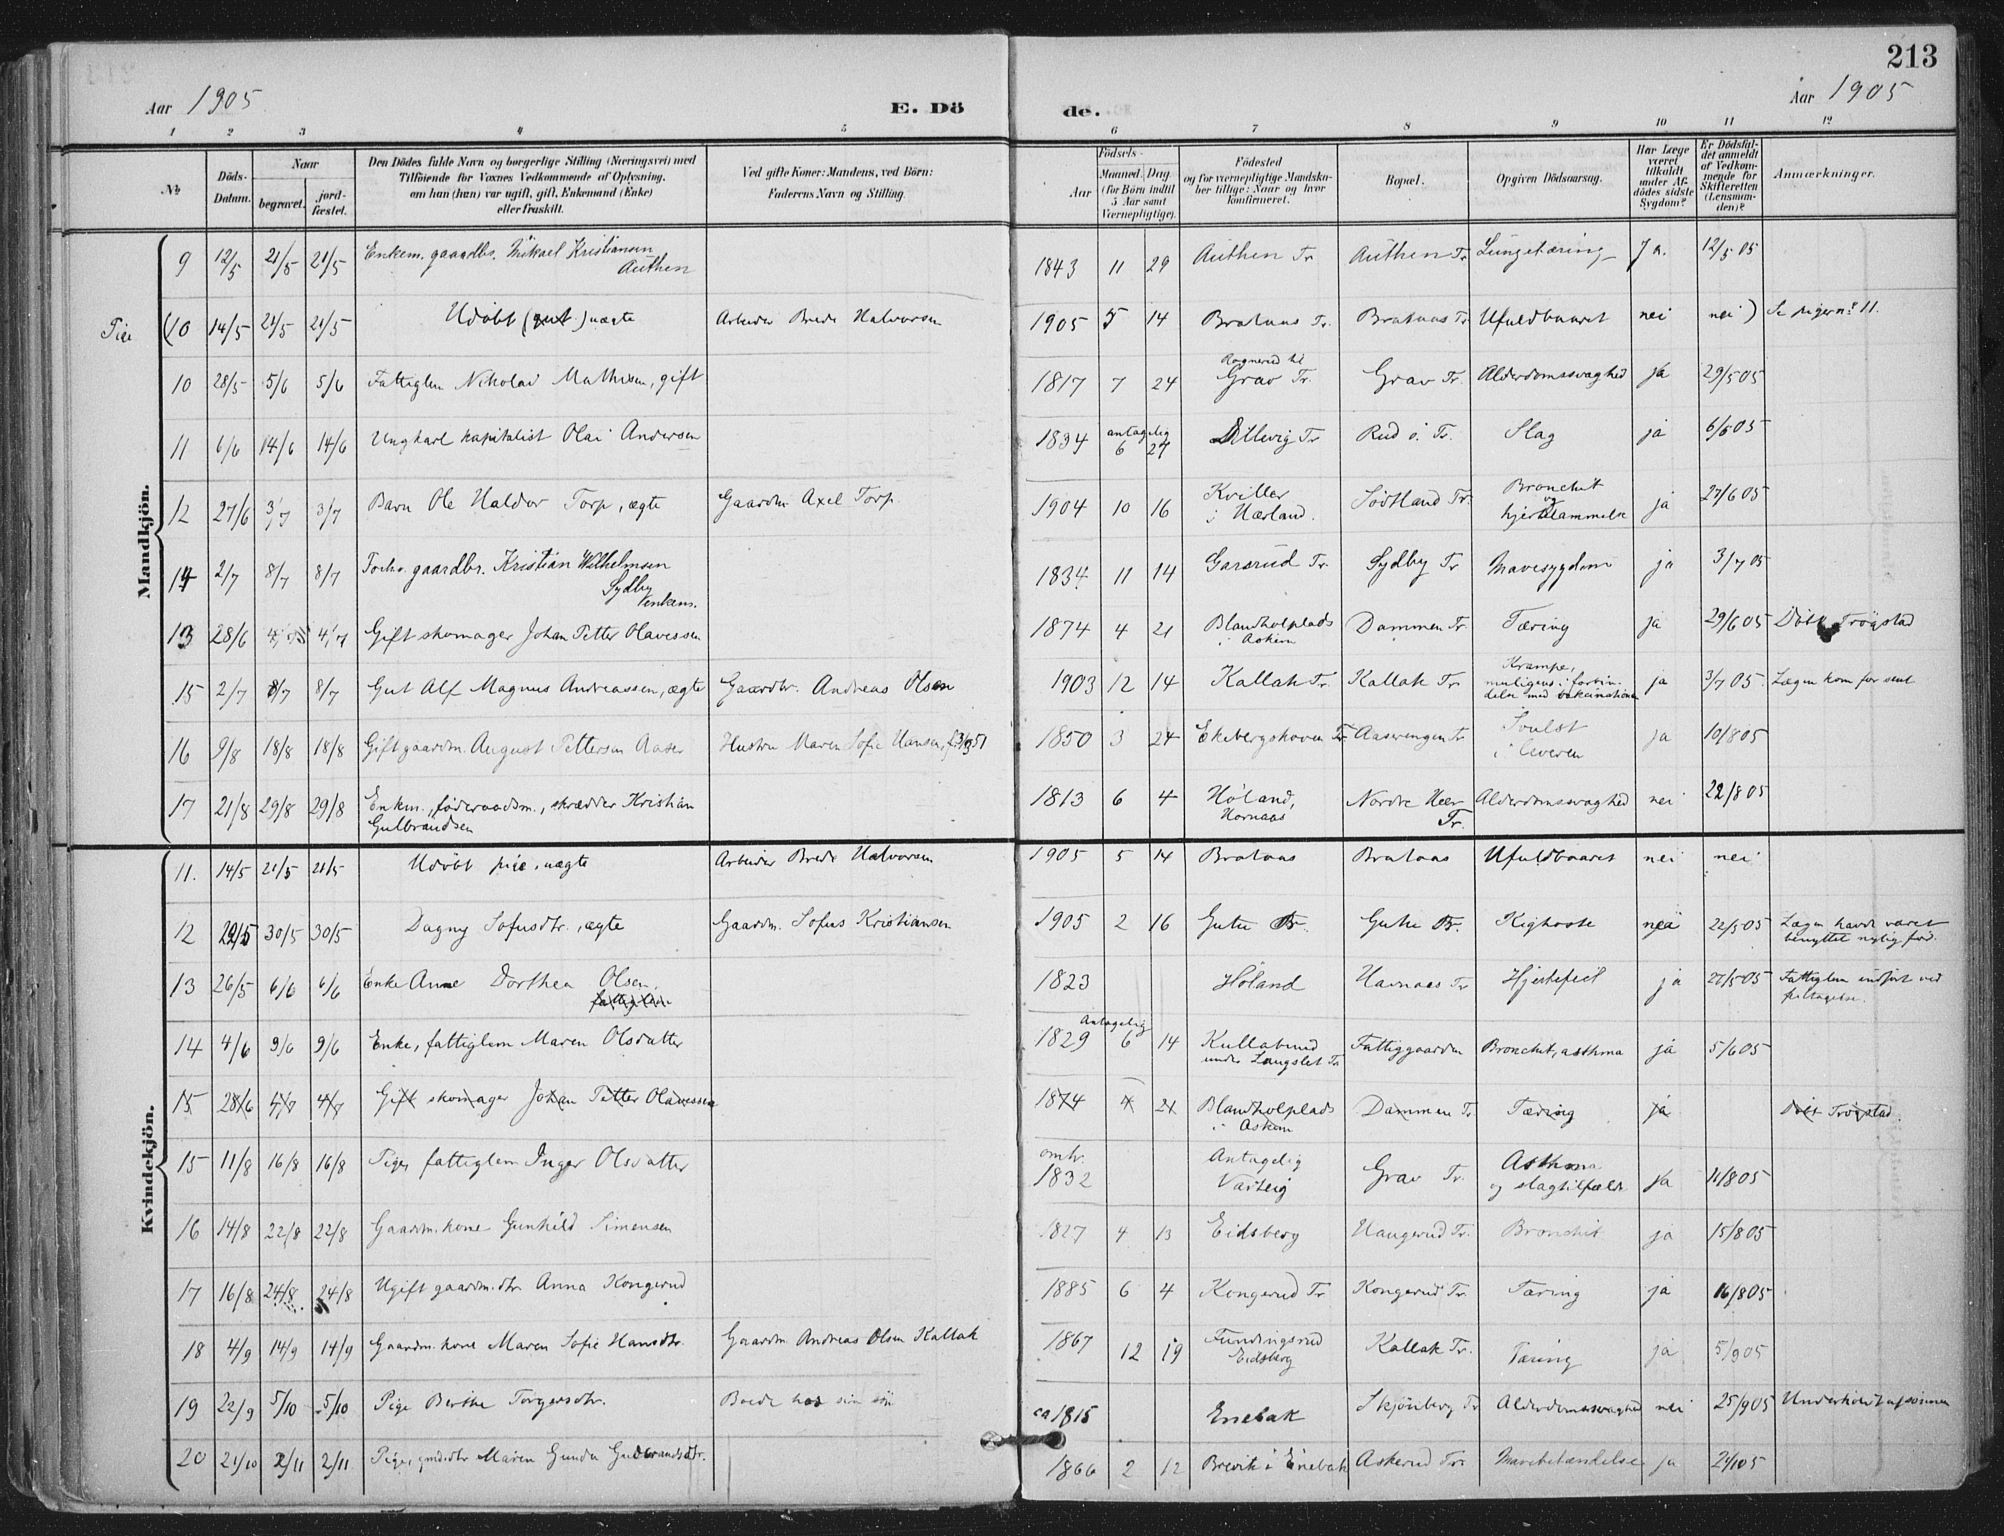 213
Aar 1905
E. Dö
de.
Aar 1905
1 2 3 4 5 6 7 8 9 10 11 12
№
Döds-Datum.
Naar
begravet.
jordfæstet.
Den Dödes fulde Navn og borgerlige Stilling (Næringsvei) med
Tilföiende for Voxnes Vedkommende af Oplysning,
om han (hun) var ugift, gift, Enkemand (Enke)
eller fraskilt.
Ved gifte Koner: Mandens, ved Börn:
Faderens Navn og Stilling.
Födsels-
Aar
Maaned. Dag
(for Börn indtil
5 Aar samt
Værnepligtige).
Födested
og for værnepligtige Mandska-
ber tillige: Naar og hvor
konfirmeret.
Bopæl.
Opgiven Dödsaarsag.
Har Læge
været
tilkaldt
under Af-
dödes sidste
Sygdom?
Er Dödsfal-
det anmeldt
af Vedkom-
mende for
Skifteretten
(Lensman-
den)?
Anmærkninger.
Mandkjön.
9 12/5 21/5 21/5 Enkem. gaardbr. Mikael Kristiansen Authen 1843 11 29 Authen Tr. Authen Tr. Lungetæring Ja. 12/5 05
Pige (10 14/5 21/5 21/5 Udöbt (gut) uægte Arbeider Brede Halvorsen 1905 5 14 Brataas Tr. Brataas Tr. Ufuldbaaret nei nei) Se piger n: 11.
10 28/5 5/6 5/6 Fattiglem Nikolai Mathisen, gift 1817 7 24 Rognerud til Grav Tr. Grav Tr. Alderdomssvaghed ja 29/5 05
11 6/6 14/6 14/6 Ungkarl kapitalist Olai Andersen 1834 antagelig 6 27 Dillevig Tr. Rud ö. Tr. Slag ja 6/6 05
12 27/6 3/7 3/7 Barn Ole Haldor Torp, ægte Gaardm. Axel Torp. 1904 10 16 Kviller i Hærland. Södtland Tr. Bronchit og hjertelammelse ja 27/6 05
14 2/7 8/7 8/7 gaardbr. Kristian Wilhelmsen Sydby enkem. 1834 11 14 Garsrud Tr. Sydby Tr. Mavesygdom ja 3/7 05
13 28/6 4/7 4/7 Gift skomager Johan Petter Olavessen 1874 4 21 Blandholplads i Askim Dammen Tr. Tæring ja 29/6 05 Döbt Trögstad
15 2/7 8/7 8/7 Gut Alf Magnus Andreassen, ægte Gaardbr. Andreas Olsen 1903 12 14 Kallak Tr. Kallak Tr. Krampe, muligens i forbindelse med vakcinationen ja 3/7 05. Lægen kom for sent
16 9/8 18/8 18/8 Gift gaardm. August Pettersen Aaser Hustru Maren Sofie Hansen, f. 1850 3 24 Ekebergshoven Tr. Aaserengen Tr. Svulst i leveren ja 10/8 05
17 21/8 29/8 29/8 Enkm., föderaadsm., skrædder Kristian Gulbrandsen 1813 6 4 Höland, Hornaas Nordre Heer Tr. Alderdomssvaghed nei 22/8 05
Kvindekjön.
11. 14/5 21/5 21/5 Udöbt pige, uægte Arbeider Brede Halvorsen 1905 5 14 Brataas Brataas Ufuldbaaret nei nei
12 22/5 30/5 30/5 Dagny Sofusdtr., ægte Gaardm. Sofus Kristiansen 1905 2 16 Gutu Tr. Gutu Tr. Kighoste nei 22/5 05 Lægen havde været benyttet nylig för.
13 26/5 6/6 6/6 Enke Anne Dorthea Olsen, fattiglem 1823 Höland Havnaas Tr. Hjertefeil ja 27/5 05 Fattiglem indfört ved feiltagelse.
14 4/6 9/6 9/6 Enke, fattiglem Maren Olsdatter 1829 Antagelig 6 14 Kullabund under Langslet Tr. Fattiggaarden Bronchit, asthma ja 5/6 05
15 28/6 4/7 4/7 Gift skomager Johan Petter Olavessen 1874 4 21 Blandholplads i Askim Dammen Tr. Tæring ja Döbt Trögstad.
15 11/8 16/8 16/8 Pige, fattiglem Inger Olsdatter omtr. 1832 Antagelig Varteig Grav Tr. Asthma og slagtilfælde ja 11/8 05
16 14/8 22/8 22/8 Gaardm. kone Gunhild Simensen 1827 4 13 Eidsberg Haugerud Tr. Bronchit ja 15/8 05
17 16/8 24/8 24/8 Ugift gaardm.dtr. Anna Kongerud 1885 6 4 Kongerud Tr. Kongerud Tr. Tæring ja 16/8 05
18 4/9 14/9 14/9 Gaardm. kone Maren Sofie Hansdtr. Gaardm. Andreas Olsen Kallak 1867 12 19 Fundingsrud Eidsberg Kallak Tr. Tæring ja 5/9 05
19 22/9 5/10 5/10 Pige Berthe Torgersdtr. Boede hos sin sön ca 1815 Enebak Skjönberg Tr. Alderdomssvaghed nei 25/9 05 Underholdt af sönnen
20 21/10 2/11 2/11 Pige, Maren Gunda Gudbrandsdtr. 1866 2 12 Brevik i Enebak Askerud Tr. Mavebetændelse ja 21/10 5